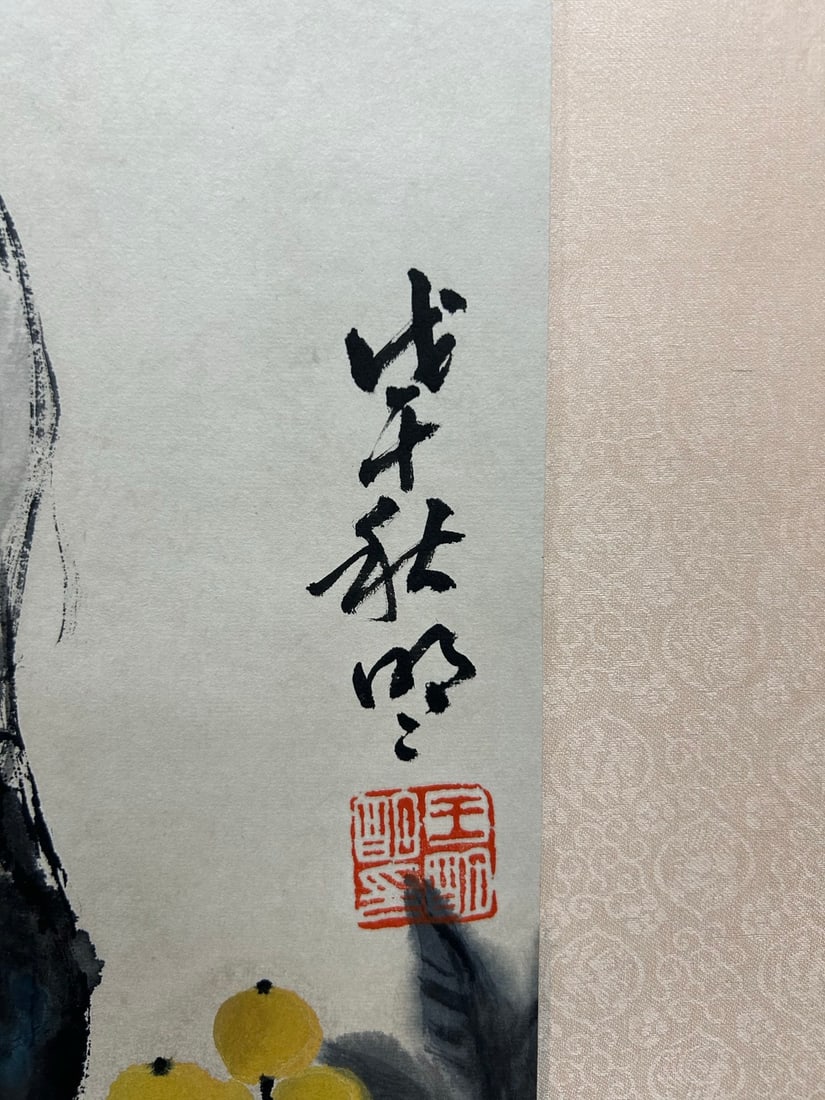 戊午秋明〻
王明明印